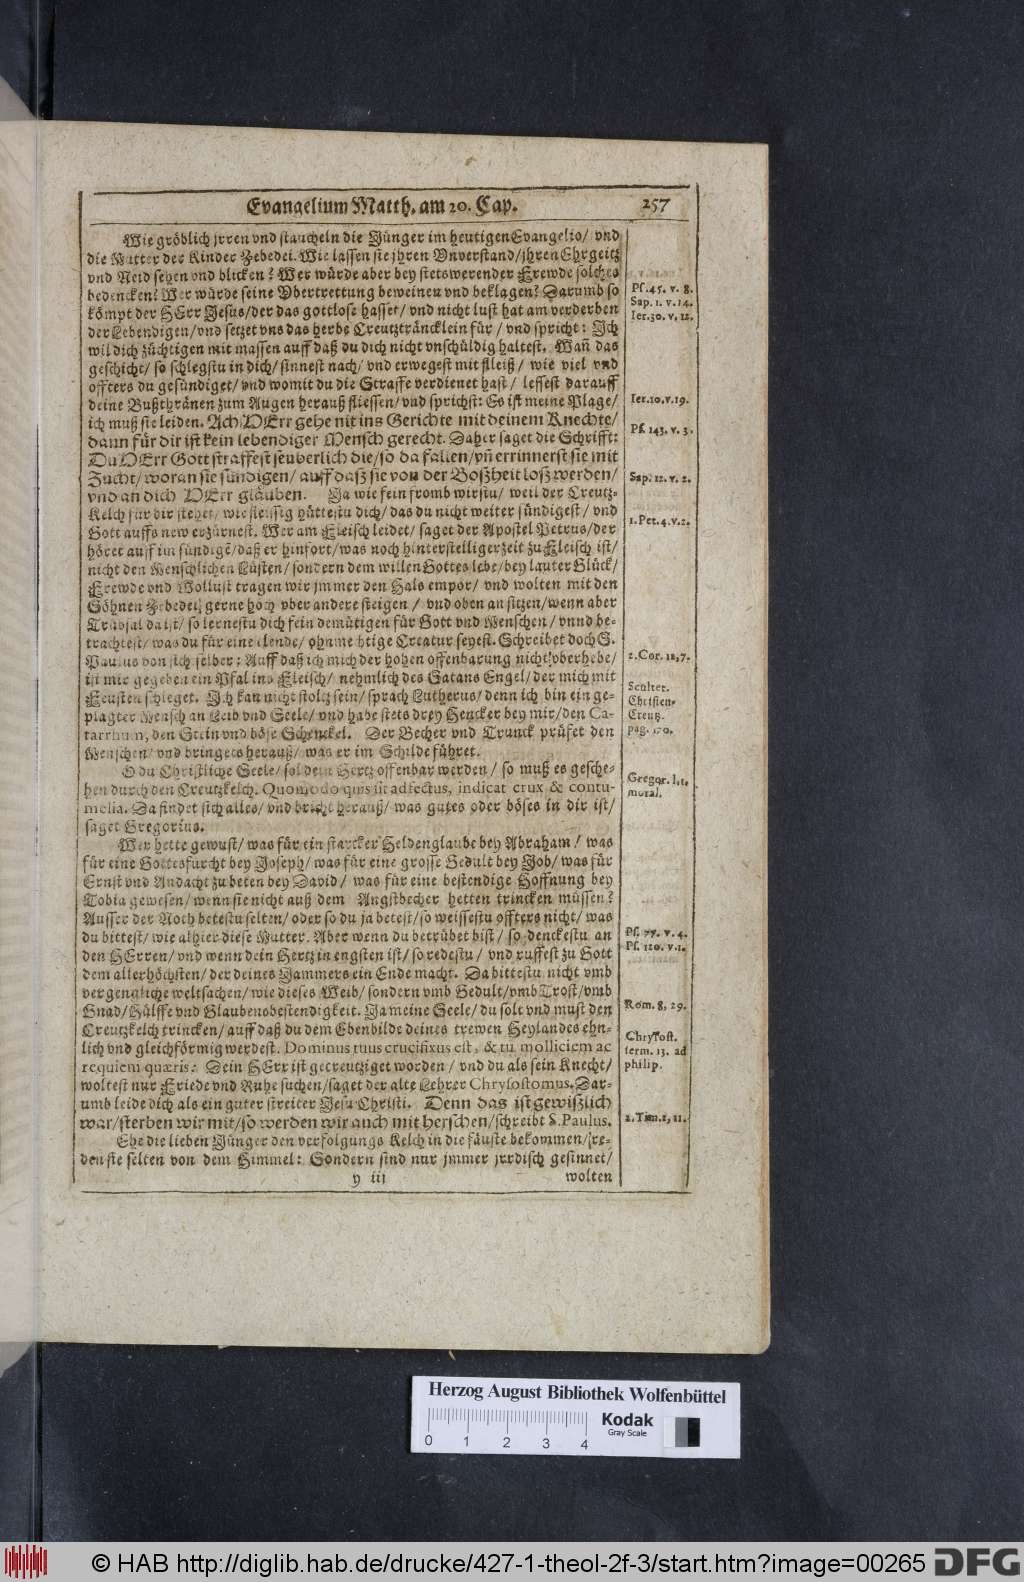 Evangelium Matth. am 20. Cap. 257
Wie gröblich jrren vnd staucheln die Jünger im heutigen Evangelio/ vnd
die Mutter der Kinder Zebedei. Wie lassen sie jhren Vnverstand/ jhren Ehrgeitz
vnd Neid sehen vnd blicken? Wer würde aber bey stetswerender Frewde solches
bedencken? Wer würde seine Vbertrettung beweinen vnd beklagen? Darumb so
kömpt der HErr Jesus/ der das gottlose hasset/ vnd nicht lust hat am verderben
der Lebendigen/ vnd setzet vns das herbe Creutzträncklein für/ vnd spricht: Ich
wil dich züchtigen mit massen auff daß du dich nicht vnschüldig haltest. Wañ das
geschicht/ so schlegstu in dich/ sinnest nach/ vnd erwegest mit fleiß/ wie viel vnd
offters du gesündiget/ vnd womit du die Straffe verdienet hast/ lessest darauff
deine Bußthränen zum Augen herauß fliessen/ vnd sprichst: Es ist meine Plage/
ich muß sie leiden. Ach HErr gehe nit ins Gerichte mit deinem Knechte/
dann für dir ist kein lebendiger Mensch gerecht. Daher saget die Schrifft:
Du HErr Gott straffest seuberlich die/ so da fallen/ vñ errinnerst sie mit
Zucht/ woran sie sündigen/ auff daß sie von der Boßheit loß werden/
vnd an dich HErr gläuben. Ja wie fein fromb wirstu/ weil der Creutz-
Kelch für dir stehet/ wie fleissig hüttestu dich/ das du nicht weiter sündigest/ vnd
Gott auffs new erzürnest. Wer am Fleisch leidet/ saget der Apostel Petrus/ der
höret auff im sündigē/ daß er hinfort/ was noch hinterstelliger zeit zu Fleisch ist/
nicht den Menschlichen Lüsten/ sondern dem willen Gottes lebe/ bey lauter Glück/
Frewde vnd Wollust tragen wir jmmer den Hals empor/ vnd wolten mit den
Söhnen Zebedei gerne hoch vber andere steigen/ vnd oben an sitzen/ wenn aber
Trübsal da ist/ so lernestu dich fein demütigen für Gott vnd Menschen/ vnnd be-
trachtest/ was du für eine elende/ ohnmechtige Creatur seyest. Schreibet doch S.
Paulus von sich selber: Auff daß ich mich der hohen offenbarung nicht vberhebe/
ist mir gegeben ein Pfal ins Fleisch/ nehmlich des Satans Engel/ der mich mit
Feusten schleget. Ich kan nicht stoltz sein/ sprach Lutherus/ denn ich bin ein ge-
plagter Mensch an Leib vnd Seele/ vnd habe stets drey Hencker bey mir/ den Ca-
tarrhum, den Stein vnd böse Schenckel. Der Becher vnd Trunck prüfet den
Menschen/ vnd bringets herauß/ was er im Schilde führet.
O du Christliche Seele/ sol dein Hertz offenbar werden/ so muß es gesche-
hen durch den Creutzkelch. Quomodo quis sit adfectus, indicat crux & contu-
melia. Da findet sich alles/ vnd bricht herauß/ was gutes oder böses in dir ist/
saget Gregorius.
Wer hette gewust/ was für ein starcker Heldenglaube bey Abraham/ was
für eine Gottesfurcht bey Joseph/ was für eine grosse Gedult bey Job/ was für
Ernst vnd Andacht zu beten bey David/ was für eine bestendige Hoffnung bey
Tobia gewesen/ wenn sie nicht auß dem Angstbecher hetten trincken müssen?
Ausser der Noth betestu selten/ oder so du ja betest/ so weissestu offters nicht/ was
du bittest/ wie alhier diese Mutter. Aber wenn du betrübet bist/ so denckestu an
den HErren/ vnd wenn dein Hertz in engsten ist/ so redestu/ vnd ruffest zu Gott
dem allerhöchsten/ der deines Jammers ein Ende macht. Da bittestu nicht vmb
vergengliche weltsachen/ wie dieses Weib/ sondern vmb Gedult/ vmb Trost/ vmb
Gnad/ Hülffe vnd Glaubensbestendigkeit. Ja meine Seele/ du solt vnd must den
Creutzkelch trincken/ auff daß du dem Ebenbilde deines trewen Heylandes ehn-
lich vnd gleichförmig werdest. Dominus tuus crucifixus est, & tu molliciem ac
requiem quæris: Dein HErr ist gecreutziget worden/ vnd du als sein Knecht/
woltest nur Friede vnd Ruhe suchen/ saget der alte Lehrer Chrysostomus. Dar-
umb leide dich als ein guter streiter Jesu Christi. Denn das ist gewißlich
war/ sterben wir mit/ so werden wir auch mit herschen/ schreibt S. Paulus.
Ehe die lieben Jünger den verfolgungs Kelch in die fäuste bekommen/ re-
den sie selten von dem Himmel: Sondern sind nur jmmer jrrdisch gesinnet/
y iii wolten
Ps. 45. v. 8.
Sap. 1. v. 14.
Ier. 30. v. 12.
Ier. 10. v. 19.
Ps. 143. v. 3.
Sap. 12. v. 2.
1. Pet. 4. v. 2.
2. Cor. 12, 7.
Scultet.
Christen-
Creutz.
pag. 170.
Gregor. l. 1.
moral.
Ps. 77. v. 4.
Ps. 120. v. 1.
Rom. 8, 29.
Chrysost.
serm. 13. ad
philip.
2. Tim. 2, 11.
Herzog August Bibliothek Wolfenbüttel
0 1 2 3 4
Kodak
Gray Scale
© HAB http://diglib.hab.de/drucke/427-1-theol-2f-3/start.htm?image=00265 DFG